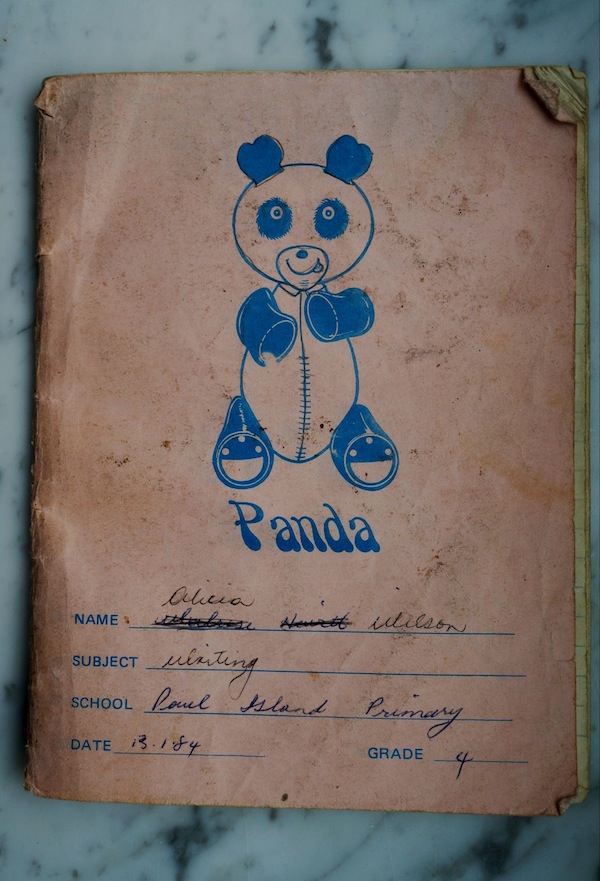 Panda
Alicia
NAME Wilson
SUBJECT Writing
SCHOOL Paul Island Primary
DATE 13.1.84 GRADE 4